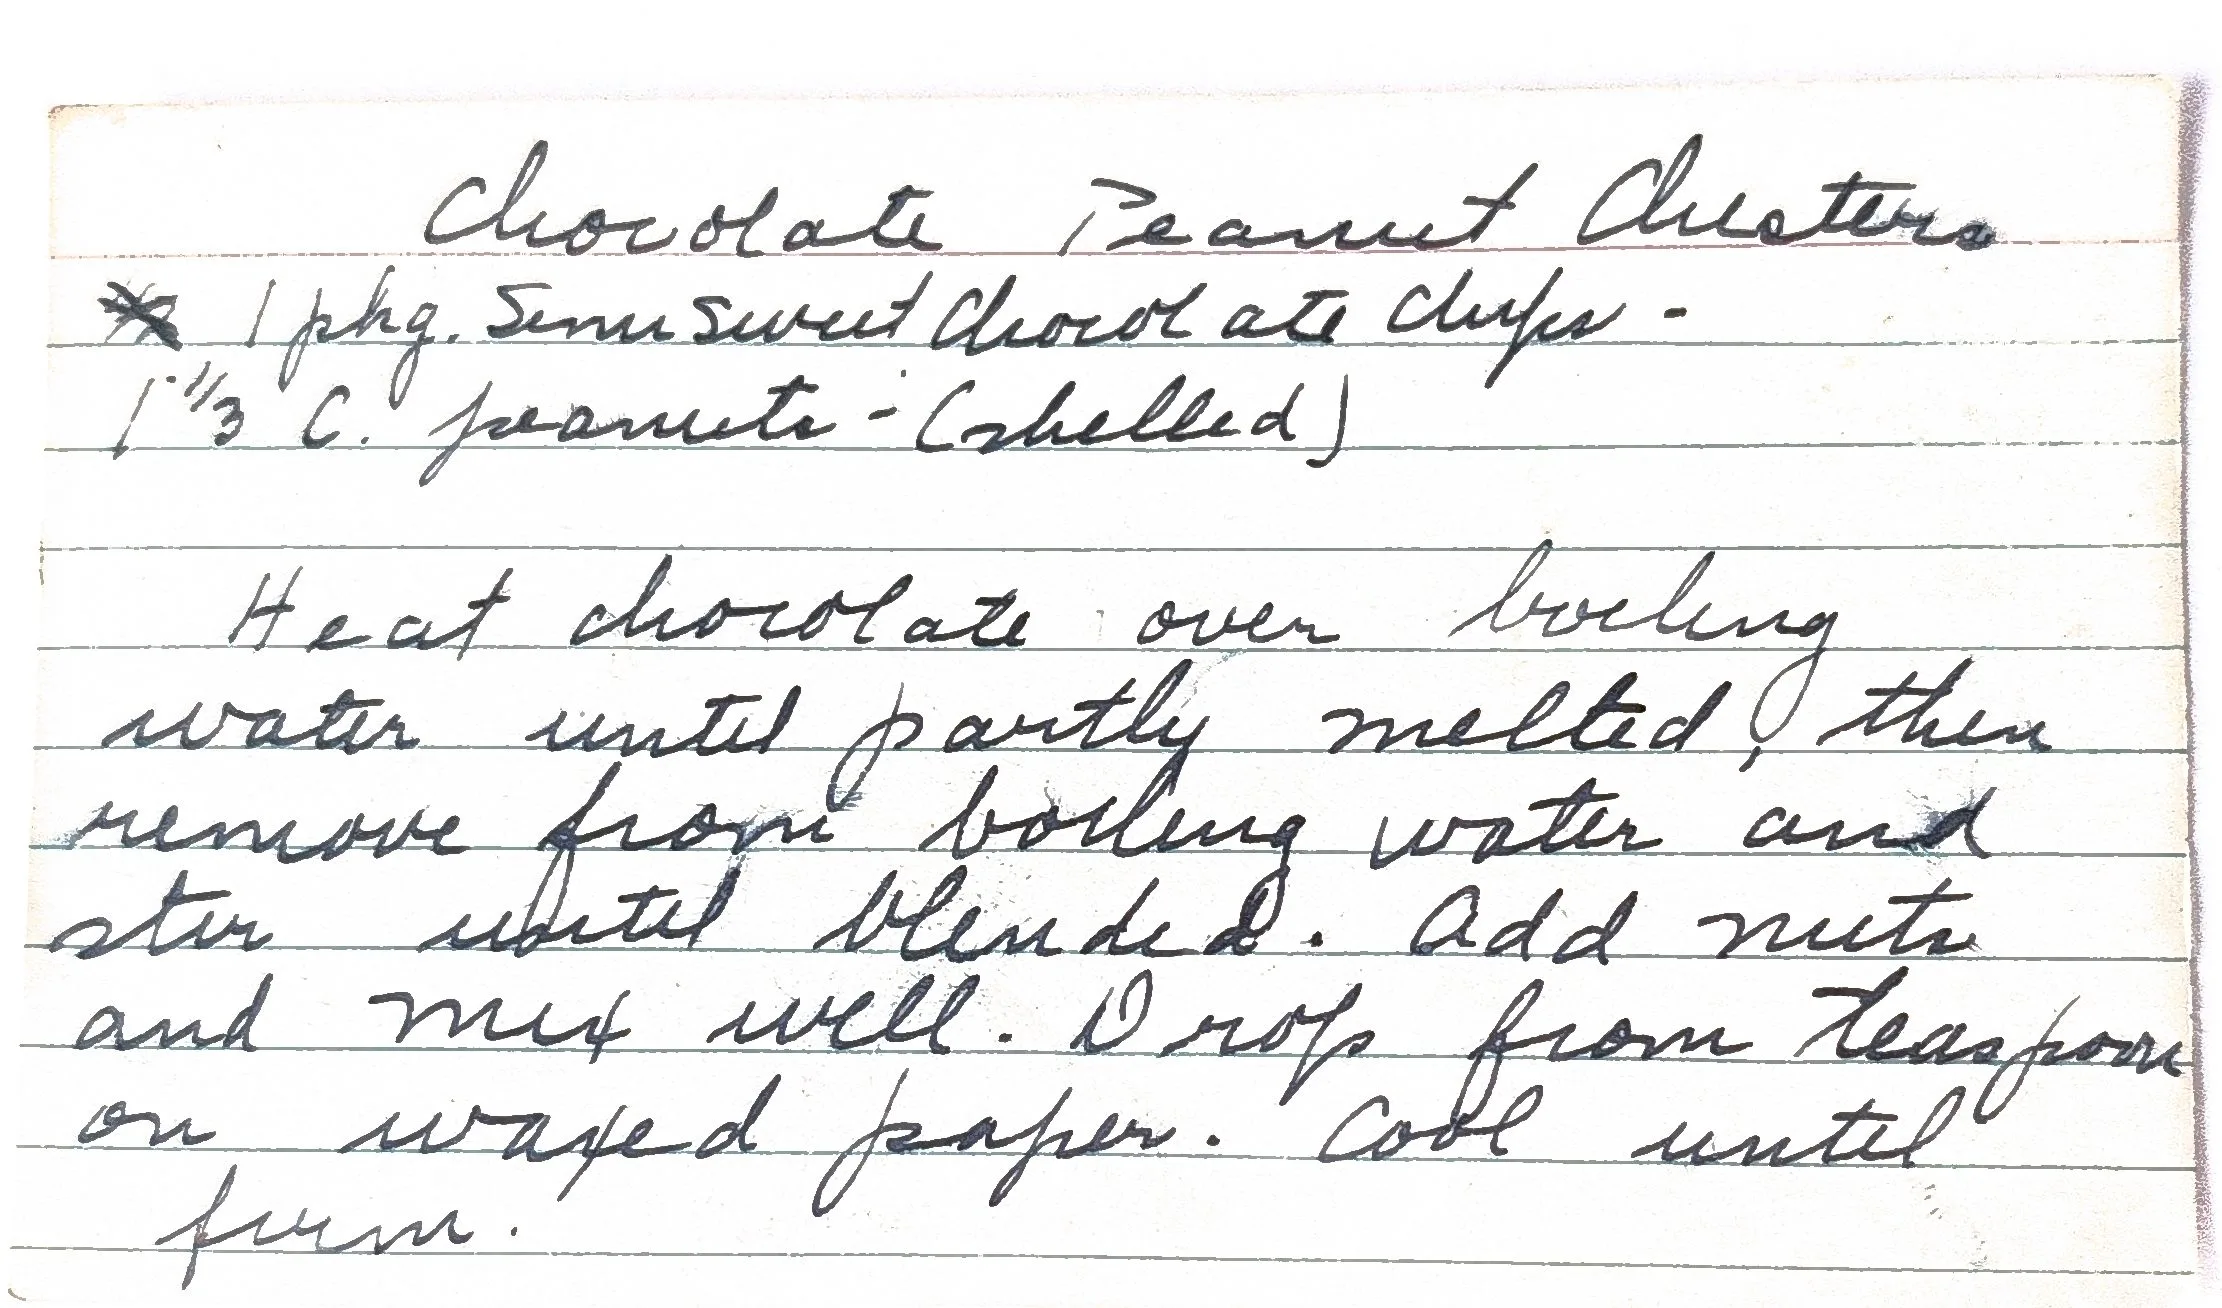 Chocolate Peanut Clusters
1 pkg. Semi Sweet Chocolate Chips -
1 1/3 C. peanuts - (shelled)
Heat chocolate over boiling
water until partly melted, then
remove from boiling water and
stir until blended. Add nuts
and mix well. Drop from teaspoon
on waxed paper. Cool until
firm.